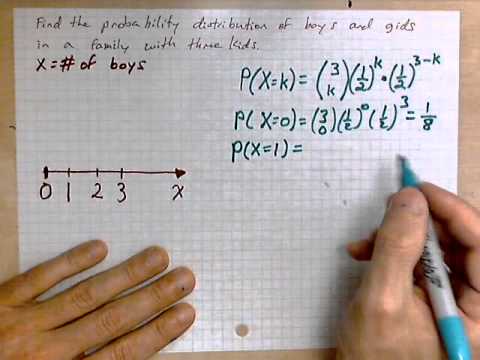 Find the probability distribution of boys and girls
in a family with three kids.
X = # of boys
P(X=k) = (3 k)(1/2)^k · (1/2)^3-k
P(X=0) = (3 0)(1/2)^0 (1/2)^3 = 1/8
P(X=1) =
0 1 2 3 x